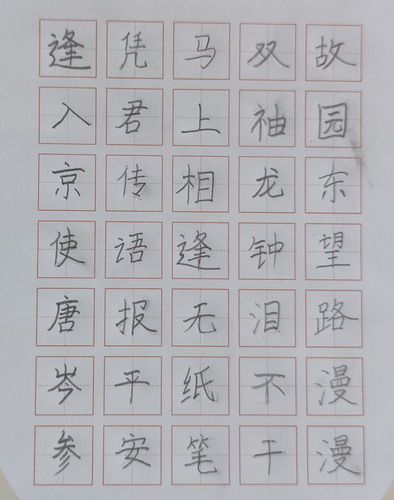 故园东望路漫漫
双袖龙钟泪不干
马上相逢无纸笔
凭君传语报平安
逢入京使唐岑参